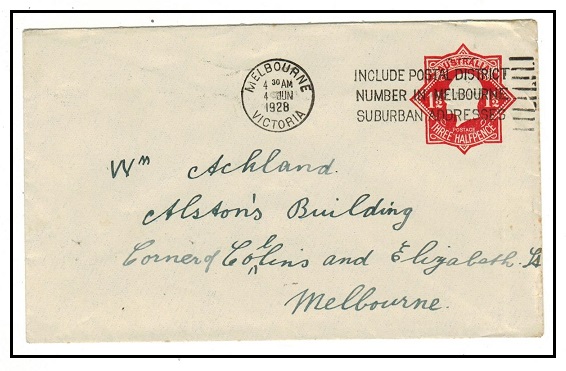 MELBOURNE
4 30 AM
4 JUN
1928
VICTORIA
INCLUDE POSTAL DISTRICT
NUMBER IN MELBOURNE
SUBURBAN ADDRESSES
AUSTRALIA
1½ 1½
POSTAGE
THREE HALFPENCE
Wm Ackland.
Alston's Building
Corner of Collins and Elizabeth. Sts
Melbourne.